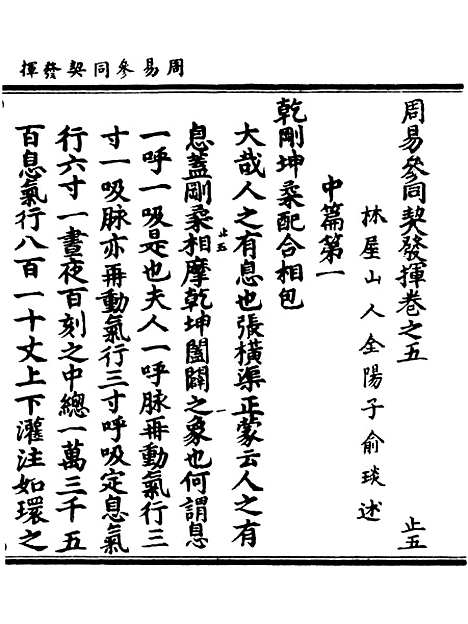 周易參同契發揮
周易參同契發揮卷之五 止五
林屋山人全陽子俞琰述
中篇第一
乾剛坤柔配合相包
大哉人之有息也張橫渠正蒙云人之有
息蓋剛柔相摩乾坤闔闢之象也何謂息
止五 一
一呼一吸是也夫人一呼脉再動氣行三
寸一吸脉亦再動氣行三寸呼吸定息氣
行六寸一晝夜百刻之中總一萬三千五
百息氣行八百一十丈上下灌注如環之